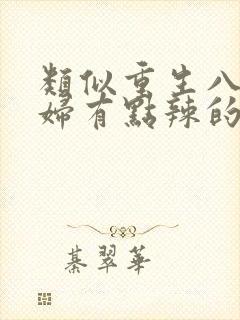 類似重生八
婦有點辣的
綦翠華